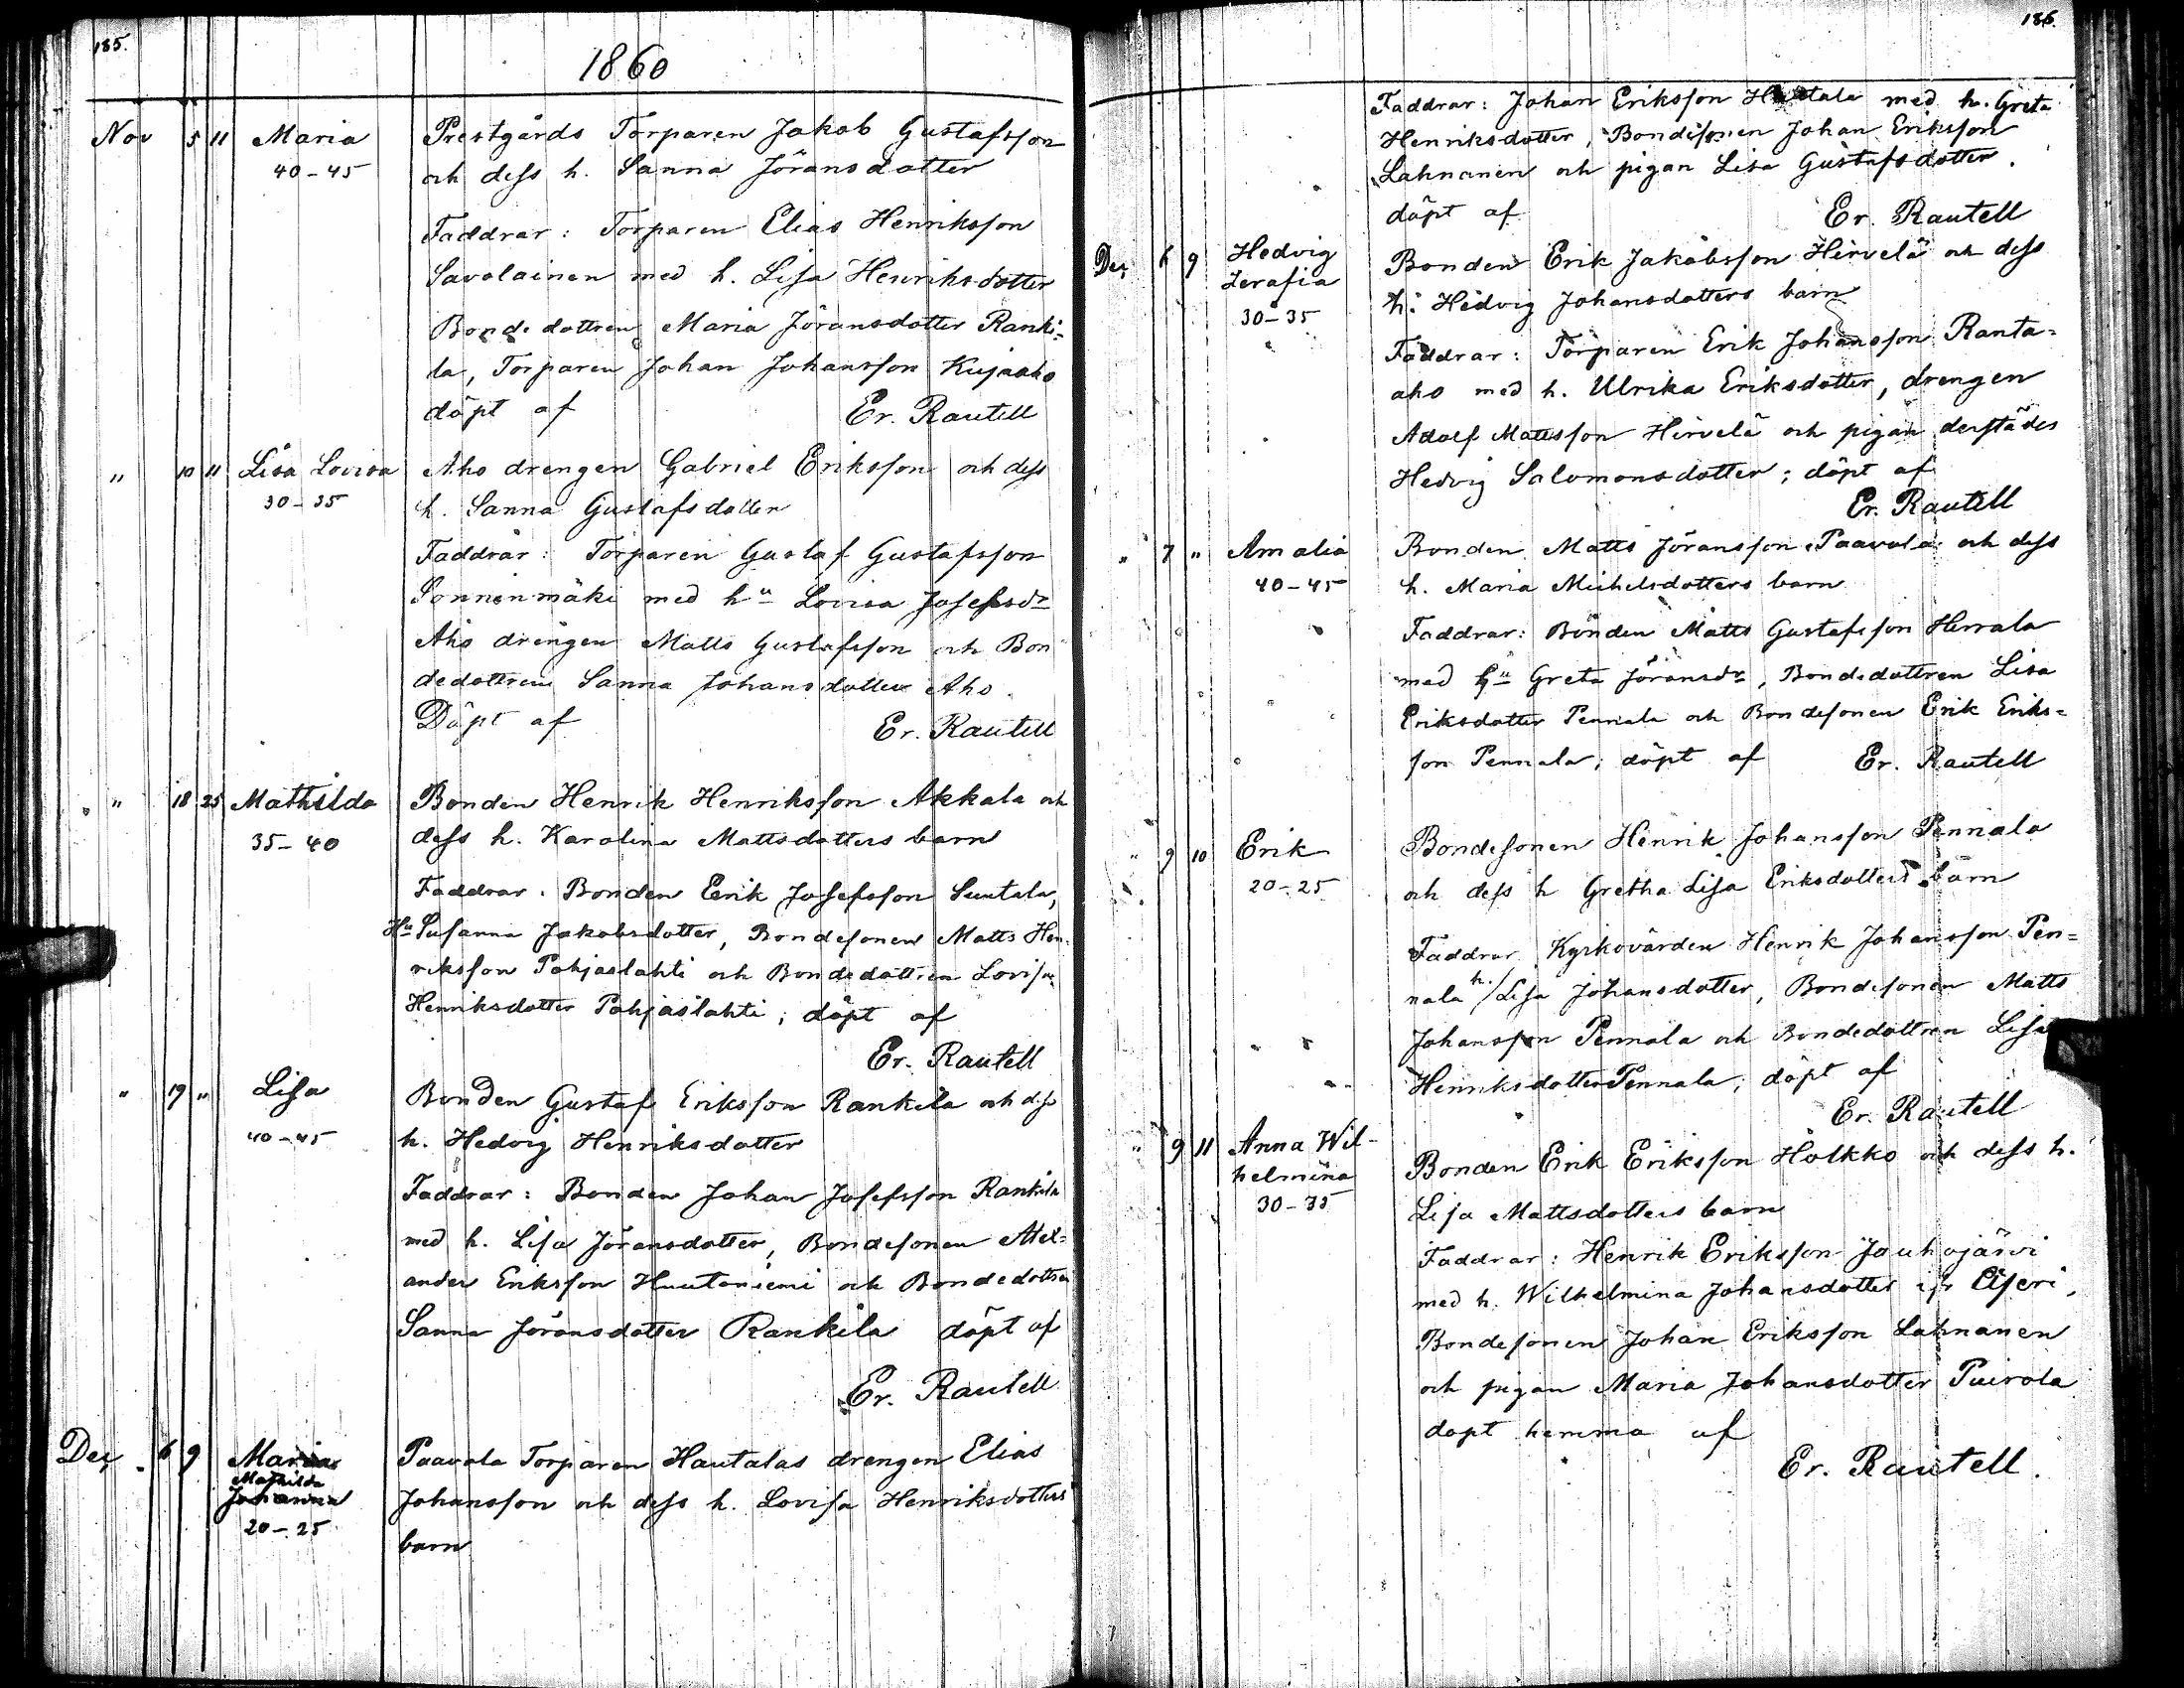 185.
1860
Nov 5 11 Maria Prestgårds Torparen Jakob Gustafsson
40-45 och dess h. Sanna Jöransdotter
Faddrar: Torparen Elias Henriksson
Savolainen med h. Lisa Henriksdotter
Bondedottren Maria Jöransdotter Ranki=
la, Torparen Johan Johansson Kujaaho
döpt af Er. Rautell
" 10 11 Lisa Lovisa Aho drengen Gabriel Eriksson och dess
30-35 h. Sanna Gustafsdotter
Faddrar: Torparen Gustaf Gustafsson
Sonninmäki med hu Lovisa Josefsdr
Aho drengen Matts Gustafsson och Bon
dedottren Sanna Johansdotter Aho.
Döpt af Er. Rautell
" 18 25 Mathilda Bonden Henrik Henriksson Akkala och
35-40 dess h. Karolina Mattsdotters barn
Faddrar. Bonden Erik Josefsson Suutala,
Hu Susanna Jakobsdotter, Bondesonen Matts Hen-
riksson Pohjaslahti och Bondedottren Lovisa
Henriksdotter Pohjaslahti; döpt af
Er. Rautell
" 19 " Lisa Bonden Gustaf Eriksson Rankila och dess
40-45 h. Hedvig Henriksdotter
Faddrar: Bonden Johan Josefsson Rankila
med h. Lisa Jöransdotter, Bondesonen Alex=
ander Eriksson Huutoniemi och Bondedottren
Sanna Jöransdotter Rankila döpt af
Er. Rautell
Dec. 6 9 Maria Paavola Torparen Hautalas drengen Elias
Mathilda
Johanna Johansson och dess h. Lovisa Henriksdotters
20-25 barn
186.
Faddrar: Johan Eriksson Hautala med h. Greta
Henriksdotter, Bondesonen Johan Eriksson
Lahnanen och pigan Lisa Gustafsdotter.
döpt af Er. Rautell
Dec. 6 9 Hedvig Bonden Erik Jakobsson Hirvelä och dess
Serafia h. Hedvig Johansdotters barn
30-35
Faddrar: Torparen Erik Johansson Ranta=
aho med h. Ulrika Eriksdotter, drengen
Adolf Mattsson Hirvelä och pigan derstädes
Hedvig Salomonsdotter; döpt af
Er. Rautell
" 7 " Amalia Bonden Matts Jöransson Paavola och dess
40-45 h. Maria Michelsdotters barn
Faddrar: Bonden Matts Gustafsson Herrala
med hu Greta Jöransdr, Bondedottren Lisa
Eriksdotter Pennala och Bondesonen Erik Eriks=
son Pennala; döpt af Er. Rautell
" 9 10 Erik Bondesonen Henrik Johansson Pennala
20-25 och dess h Gretha Lisa Eriksdotters barn
Faddrar Kyrkovärden Henrik Johansson Pen=
nala h./Lisa Johansdotter, Bondesonen Matts
Johansson Pennala och Bondedottren Lisa
Henriksdotter Pennala; döpt af
Er. Rautell
" 9 11 Anna Wil- Bonden Erik Eriksson Hölkko och dess h.
helmina
30-35 Lisa Mattsdotters barn
Faddrar: Henrik Eriksson Jouhojärvi
med h. Wilhelmina Johansdotter
Bondesonen Johan Eriksson Lahnanen
och pigan Maria Johansdotter Puirola
döpt hemma af
Er. Rautell.